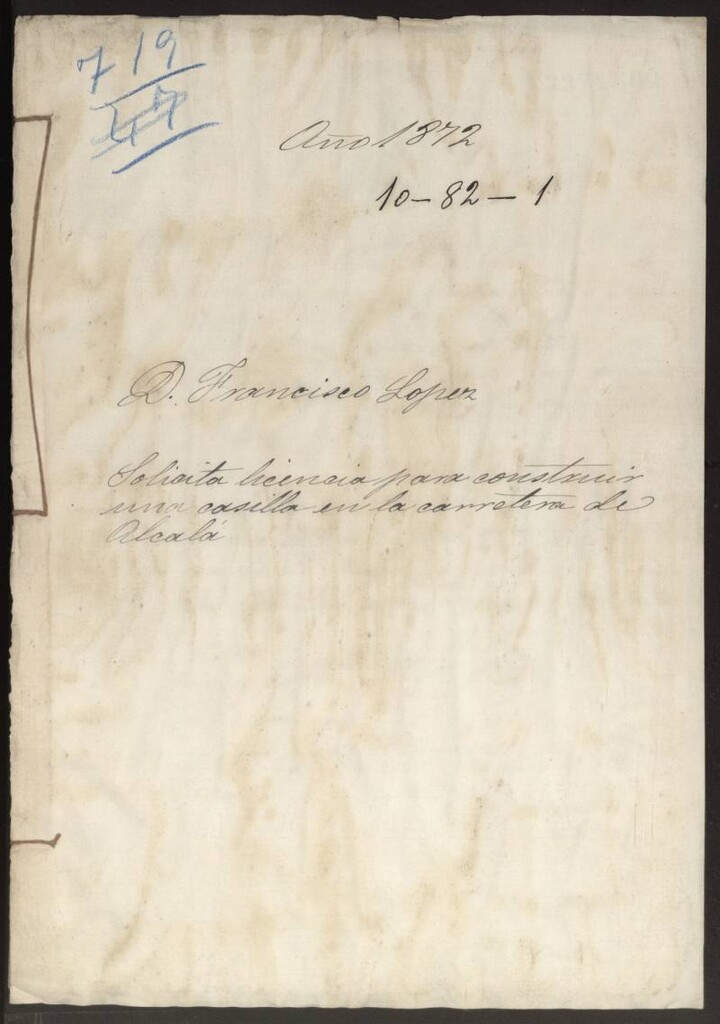 719
Año 1872
10-82-1
D. Francisco Lopez
Solicita licencia para construir
una casilla en la carretera de
Alcalá